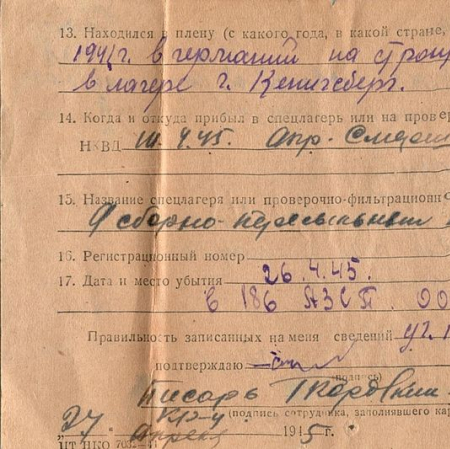 13. Находился в плену (с какого года, в какой стране,
1941 г. в германии на строи
в лагере г. Кенигсберг.
14. Когда и откуда прибыл в спецлагерь или на прове
НКВД 4.45.
15. Название спецлагеря или проверочно-фильтрационно
сборно-пересыльный
16. Регистрационный номер
17. Дата и место убытия 26.4.45.
в 186 АЗСП.
Правильность записанных на меня сведений
подтверждаю
(подпись)
Писарь
(подпись сотрудника, заполнявшего кар
"27" апреля 1945 г.